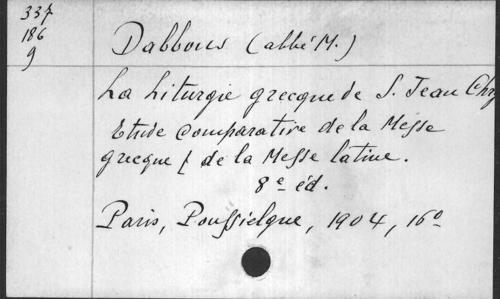 337
186
9
Dabbous (abbé M.)
La Liturgie grecque de S. Jean Chry
Etude comparative de la Messe
grecque & de la Messe latine.
8e éd.
Paris, Poussielgue, 1904, 16º